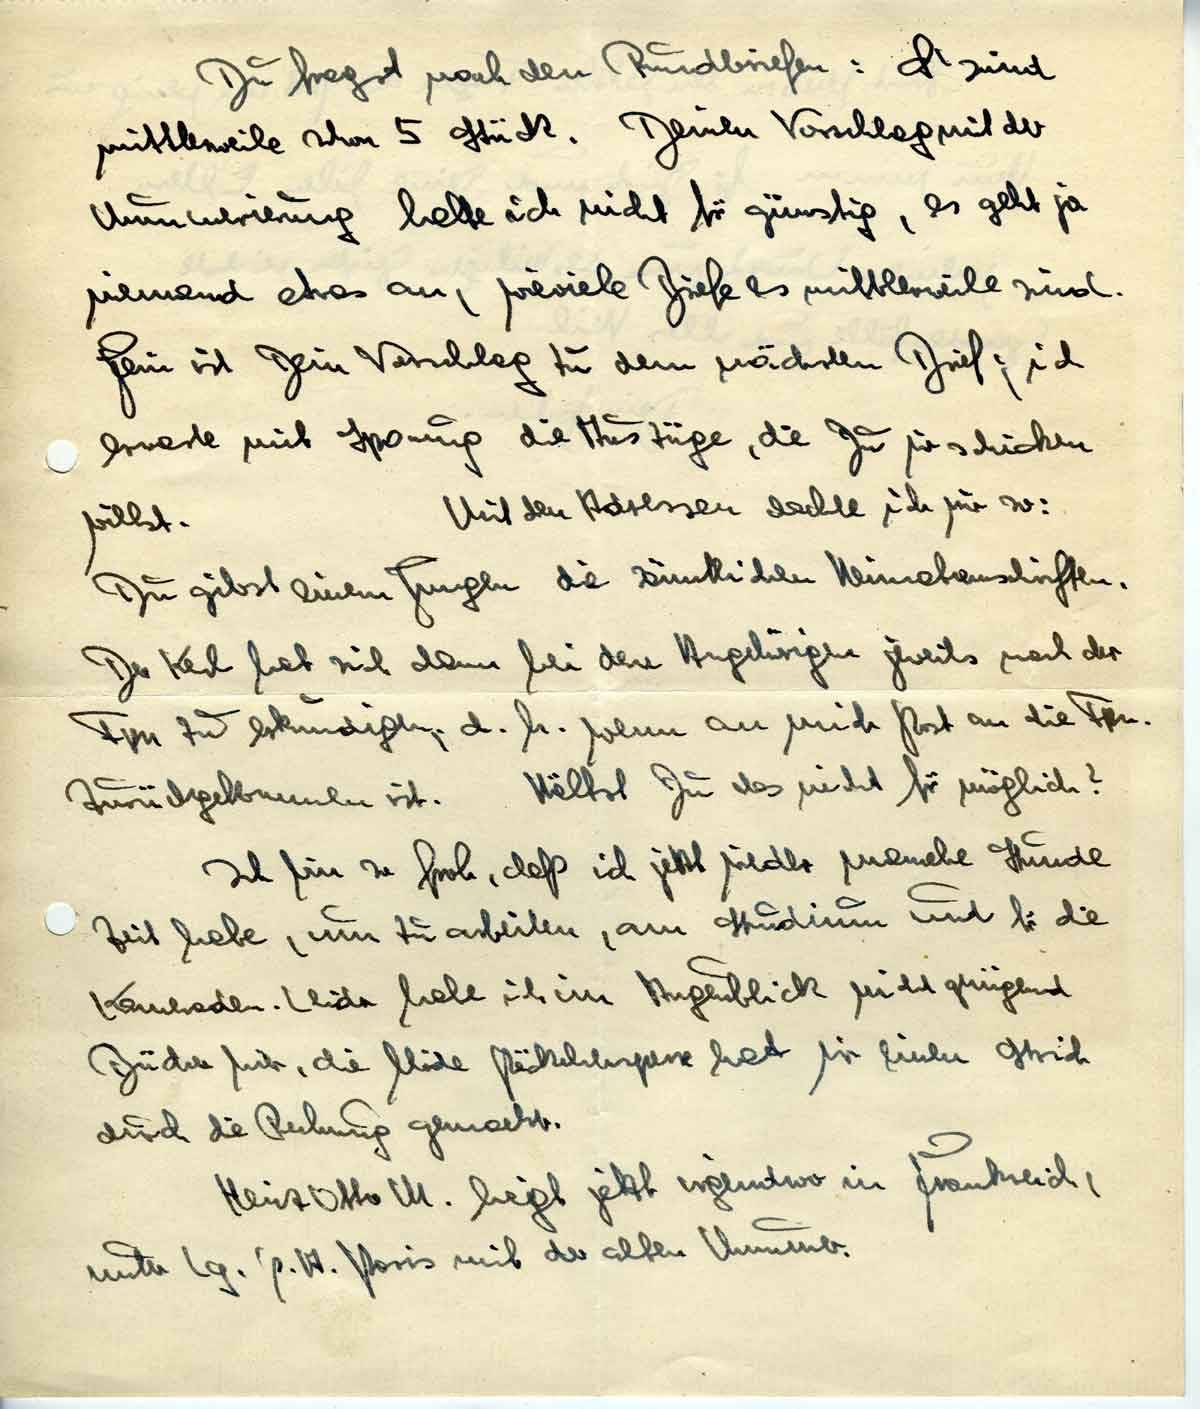 Du fragst nach den Rundbriefen: Es sind
mittlerweile schon 5 Stück. Deinen Vorschlag mit der
Nummerierung halte ich nicht für günstig, es geht ja
niemand etwas an, wieviele Briefe es mittlerweile sind.
Fein ist Dein Vorschlag zu dem nächsten Brief; ich
erwarte mit Spannung die Auszüge, die Du mir schicken
willst. Mit den Adressen dachte ich mir so:
Du gibst einem Jungen die sämtlichen Heimatanschriften.
Der Kerl hat sich dann bei den Angehörigen jeweils nach der
Fpn zu erkundigen, d. h. wenn an mich Post an die Fpn.
zurückgekommen ist. Hältst Du das nicht für möglich?
Ich bin so froh, daß ich jetzt wieder manche Stunde
Zeit habe, um zu arbeiten, am Studium und für die
Kameraden. Leider habe ich im Augenblick nicht genügend
Bücher hier, die blöde Päckchensperre hat mir einen Strich
durch die Rechnung gemacht.
Heinz Otto M. liegt jetzt irgendwo in Frankreich,
unter Lg. p. A. Paris mit der alten Nummer.